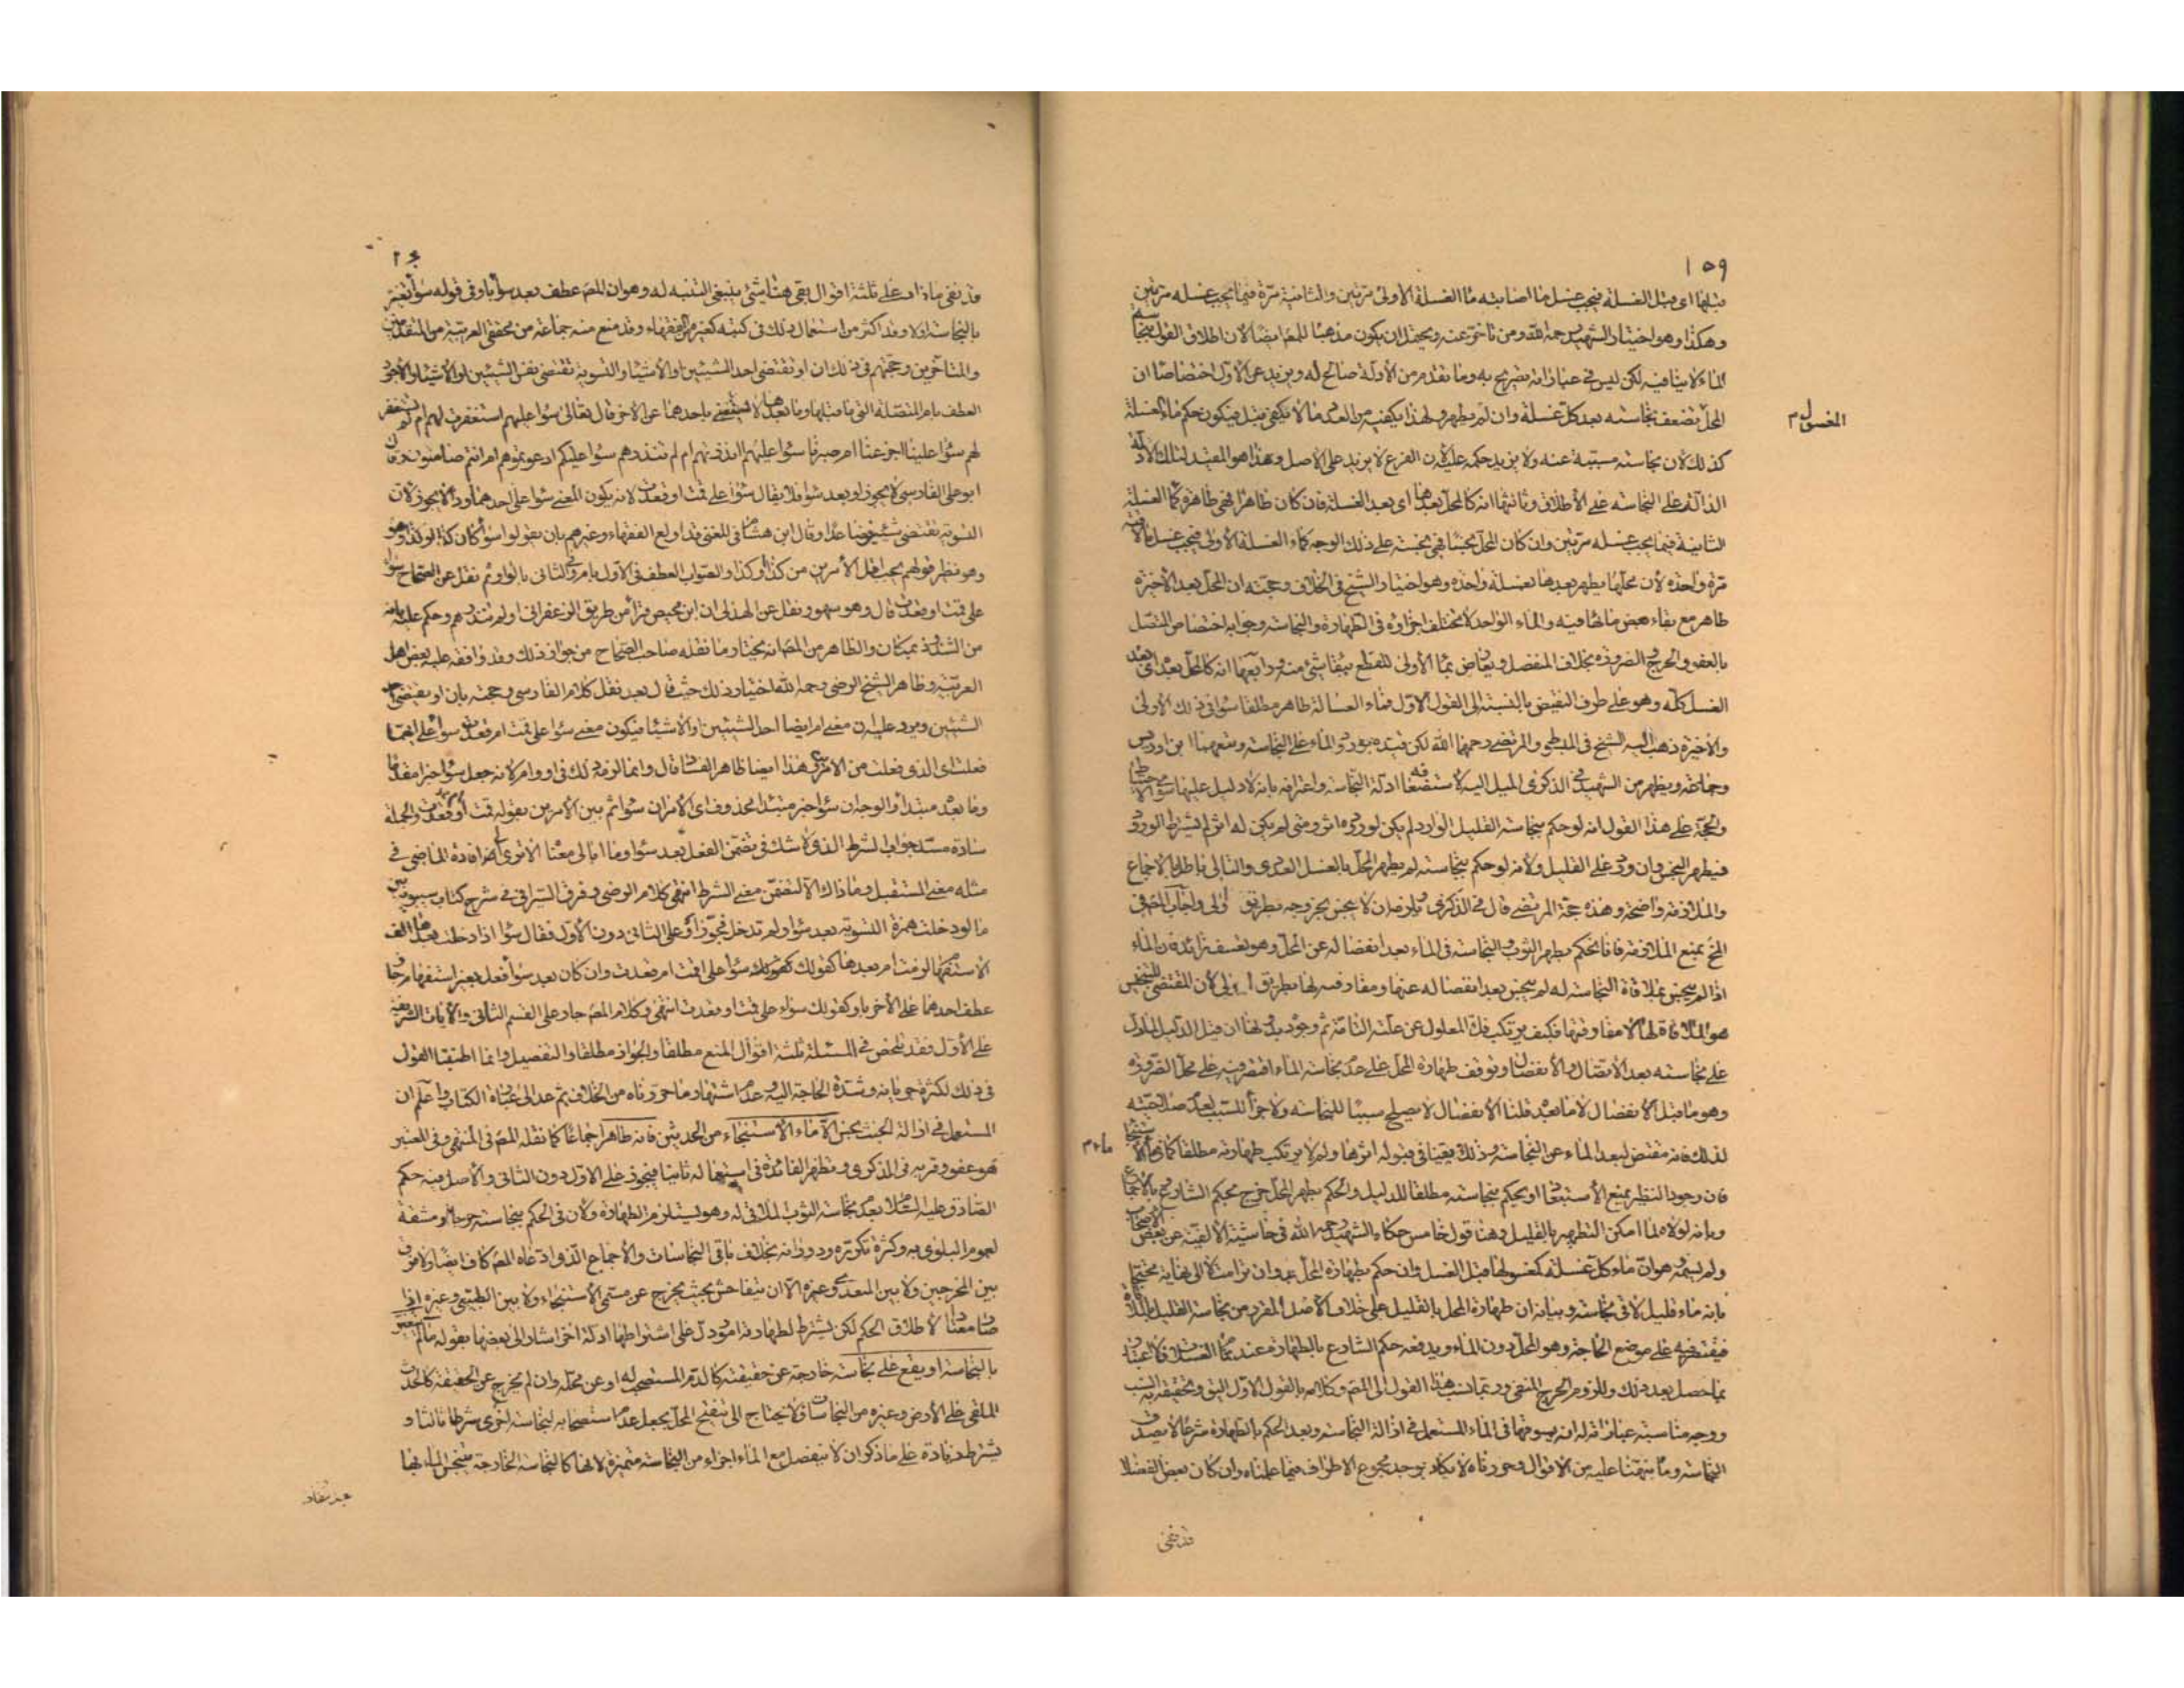 ١٥٩
قبلها اى قبل الغسلة فيجب غسل ما اصابه ماء الغسلة الأولى مرتين والثانية مرّة فيما يجب غسله مرّتين
وهكذا وهو اختيار الشهيد رحمه الله ومن تاخر عنه ويحتمل ان يكون مذهبا للمص ايضا لان اطلاق القول بنجاسة
الماء لا ينافيه لكن ليس فى عباراته تصريح به وما تقدم من الأدلة صالح له ويزيد عن الأول اختصاصا ان
المحلّ تضعف نجاسته بعد كل غسلة وان لم يطهر ولهذا يكفيه من العدد ما لا يكفى قبل فيكون حكم ماء الغسلة
المغسول م
كذلك لان نجاسته مسببة عنه ولا يزيد حكمه عليه لان الفرع لا يزيد على الاصل وهذا هو المقيد لتلك الأدلة
الدالّة على النجاسة على الأطلاق وثالثها انه كالمحل بعدها اى بعد الغسلة فان كان طاهرا فهى طاهرة كماء الغسلة
الثانية فيما يجب غسله مرّتين وان كان المحلّ نجسا فهى نجسة على ذلك الوجه كماء الغسلة الأولى فيجب غسل ملاقيه
مرّة واحدة لأن محلّها يطهر بعدها بغسلة واحدة وهو اختيار الشيخ فى الخلاف وحجّته ان المحلّ بعد الأخيرة
طاهر مع بقاء بعض مائها فيه والماء الواحد لا تختلف اجزاؤه فى الطهارة والنجاسة وجوابه اختصاص المتصل
بالعفو والحرج والضرورة بخلاف المنفصل ويعارض بماء الأولى للقطع ببقاء شئ منه ورابعها انه كالمحل بعد اى بعد
الغسل كلّه وهو على طرف النقيض بالنسبة الى القول الاوّل فماء الغسالة طاهر مطلقا سواء فى ذلك الأولى
والأخيرة ذهب اليه الشيخ فى المبسوط والمرتضى رحمهما الله لكن قيّده بورود الماء على النجاسة وتبعهما ابن ادريس
وجماعة ويظهر من الشهيد فى الذكرى الميل اليه لاستضعافه ادلة النجاسة واعترافه بانه لا دليل عليها سوى الاحتياط
والحجّة على هذا القول انه لو حكم بنجاسة القليل الوارد لم يكن لوروده اثر ومتى لم يكن له اثر لم يشترط الورود
فيطهر النجس وان ورد على القليل ولأنه لو حكم بنجاسته لم يطهر المحلّ بالغسل العددى والتالى باطل بالاجماع
والملازمة واضحة وهذه حجّة المرتضى قال فى الذكرى ويلزمان لا ينجس بخروجه بطريق أولى واجاب المحقق
الشيخ بمنع الملازمة فانا نحكم بطهر الثوب والنجاسة فى الماء بعد انفصاله عن المحلّ وهو تعسف زائد فان الماء
اذا لم ينجس بملاقاة النجاسة له لم ينجس بعد انفصاله عنها ومفارقته لها بطريق اولى لأن المقتضى للتنجيس
هو الملاقاة لها لا مفارقتها فكيف يرتكب فكّ المعلول عن علّته التامّة ثم وجوده بدونها ان قيل الدليل لما دلّ
على نجاسته بعد الاتصال والأنفصال وتوقف طهارة المحل على عدم نجاسة الماء اقتصر فيه على محلّ الضرورة
وهو ما قبل الأنفصال لا ما بعد قلنا الأنفصال لا يصلح سببا للنجاسة ولا جزأ للسبب لعدم صلاحيته
لذلك فانه مقتض لبعد الماء عن النجاسة وذلك يقينا فى قبوله اثرها ولم لا يرتكب طهارته مطلقا كماء الأستنجاء
ماء م
فان وجود النظير يمنع الأستبعاد او يحكم بنجاسته مطلقا للدليل والحكم بطهر المحلّ خرج بحكم الشارع بالأجماع
وبانه لولاه لما امكن التطهير بالقليل وهنا قول خامس حكاه الشهيد رحمه الله فى حاشية الألفية عن بعض الأصحاب
ولم يسمّه وهو انّ ماء كل غسلة كمغسولها قبل الغسل وان حكم بطهارة المحل به وان ترامت لا الى نهاية محتجّا
بانه ماء قليل لاقى نجاسة وبيانه ان طهارة المحل بالقليل على خلاف الأصل المقرر من نجاسة القليل بالملاقاة
فيقتصر فيه على موضع الحاجة وهو المحلّ دون الماء ويدفعه حكم الشارع بالطهارة عند تمام الغسلات فلا عبرة
بما حصل بعد ذلك وللزوم الحرج المنفى وربما نسب هذا القول الى المص وكلامه بالقول الاوّل اليق وتحقيقه انسب
ووجه مناسبة عبارته له انه يسوقها فى الماء المستعمل فى ازالة النجاسة وبعد الحكم بالطهارة شرعا لا يصدق
النجاسة وما نبّهنا عليه من الاقوال وحررناه لا يكاد يوجد مجموع الاطراف فيما علمناه وان كان بعض الفضلا
قد نفى
قد نفى ما زاد على ثلثة اقوال بقى هنا شئ ينبغى التنبه له وهو ان المص عطف بعد سواء باو فى قوله سواء تغيّر
بالنجاسة اولا وقد اكثر من استعمال ذلك فى كتبه كغيره من الفقهاء وقد منع منه جماعة من محققى العربية من المتقدمين
والمتأخرين وحجّتهم فى ذلك ان او تقتضى احد الشيئين او الأشياء والتسوية تقتضى نفس الشيئين او الأشياء والأجود
العطف بام المتصلة التى ما قبلها وما بعدها لا يستغنى باحدهما عن الآخر قال تعالى سواء عليهم استغفرت لهم ام لم تستغفر
لهم سواء علينا اجزعنا ام صبرنا سواء عليهم انذرتهم ام لم تنذرهم سواء عليكم ادعوتموهم ام انتم صامتون وقال
ابو على الفارسى لا يجوز او بعد سواء فلا يقال سواء على قمت او قعدت لانه يكون المعنى سواء على احدهما وذا لا يجوز لان
التسوية تقتضى شيئين فصاعدا وقال ابن هشام فى المغنى قد اولع الفقهاء وغيرهم بان يقولوا سواء كان كذا او كذا وهو
وهو نظير قولهم يجب اقل الأمرين من كذا او كذا والصواب العطف فى الاول بام وفى الثانى بالواو ثم نقل عن الصحاح سواء
على قمت او قعدت قال وهو سهو ونقل عن الهذلى ان ابن محيصن قرأ من طريق الزعفرانى او لم تنذرهم وحكم عليه بانه
من الشذوذ بمكان والظاهر من المص انه يختار ما نقله صاحب الصحاح من جواز ذلك وقد وافقه عليه بعض اهل
العربية وظاهر الشيخ الرضى رحمه الله اختيار ذلك حيث قال بعد نقل كلام الفارسى وحجته بان او يقتضى احد
الشيئين ويرد عليه ان معنى ام ايضا احد الشيئين او الأشياء فيكون معنى سواء على قمت ام قعدت سواء على ايهما
فعلت اى الذى فعلت من الأمرين وهذا ايضا ظاهر الفساد قال وانما لزمه ذلك فى او وام لانه جعل سواء خبرا مقدما
وما بعده مبتدأ والوجه ان سواء خبر مبتدأ محذوف اى الأمران سواء ثم بين الأمرين بقوله قمت او قعدت والجملة
سادّة مسدّ جواب الشرط الذى لا شك فى تضمّن الفعل بعد سواء وما ابالى معناه الا ترى الى افادة الماضى فى
مثله معنى المستقبل وما ذاك الا لتضمّن معنى الشرط انتهى كلام الرضى وفرق السيرافى فى شرح كتاب سيبويه بين
ما لو دخلت همزة التسوية بعد سواء ولم تدخل فجوّز او على الثانى دون الأول فقال سواء اذا دخلت بعدها الف
الاستفهام لزمت ام بعدها كقولك سواء على اقمت ام قعدت وان كان بعد سواء فعل بغير استفهام جاز
عطف احدهما على الآخر باو كقولك سواء على قمت او قعدت انتهى وكلام المص جار على القسم الثانى والآيات الشريفة
على الأول فقد تلخص فى المسئلة ثلثة اقوال المنع مطلقا والجواز مطلقا والتفصيل وانما اطنبنا القول
فى ذلك لكثرة جريانه وشدة الحاجة اليه وعدم اشتهار ما حررناه من الخلاف ثم عد الى عبارة الكتاب واعلم ان
المستعمل فى ازالة الخبث نجس الا ماء الأستنجاء من الحدثين فانه طاهر اجماعا كما نقله المص فى المنتهى وفى المعتبر
هو عفو وقربه فى الذكرى وتظهر الفائدة فى استعماله ثانيا فيجوز على الاول دون الثانى والأصل فيه حكم
الصادق عليه السلام بعدم نجاسة الثوب الملاقى له وهو يستلزم الطهارة ولان فى الحكم بنجاسته حرجا ومشقة
لعموم البلوى به وكثرة تكرره ودورانه بخلاف باقى النجاسات والأجماع الذى ادعاه المص كاف ايضا ولا فرق
بين المخرجين ولا بين المتعدى وغيره الا ان يتفاحش بحيث يخرج عن مسمى الأستنجاء ولا بين الطبيعى وغيره اذا
صار معتادا لاطلاق الحكم لكن يشترط لطهارته امور دلّ على اشتراطها ادلة اخر اشار الى بعضها بقوله ما لم يتغير
بالنجاسة او يقع على نجاسة خارجة عن حقيقته كالدم المستصحب له او عن محلّه وان لم يخرج عن الحقيقة كالحدث
الملقى على الأرض وغيره من النجاسات فلا يحتاج الى تنقيح المحل بجعل عدم استصحابه لنجاسة اخرى شرطا ثالثا و
يشترط زيادة على ما ذكر ان لا ينفصل مع الماء اجزاء من النجاسة متميزة لانها كالنجاسة الخارجة ينجس الماء بها